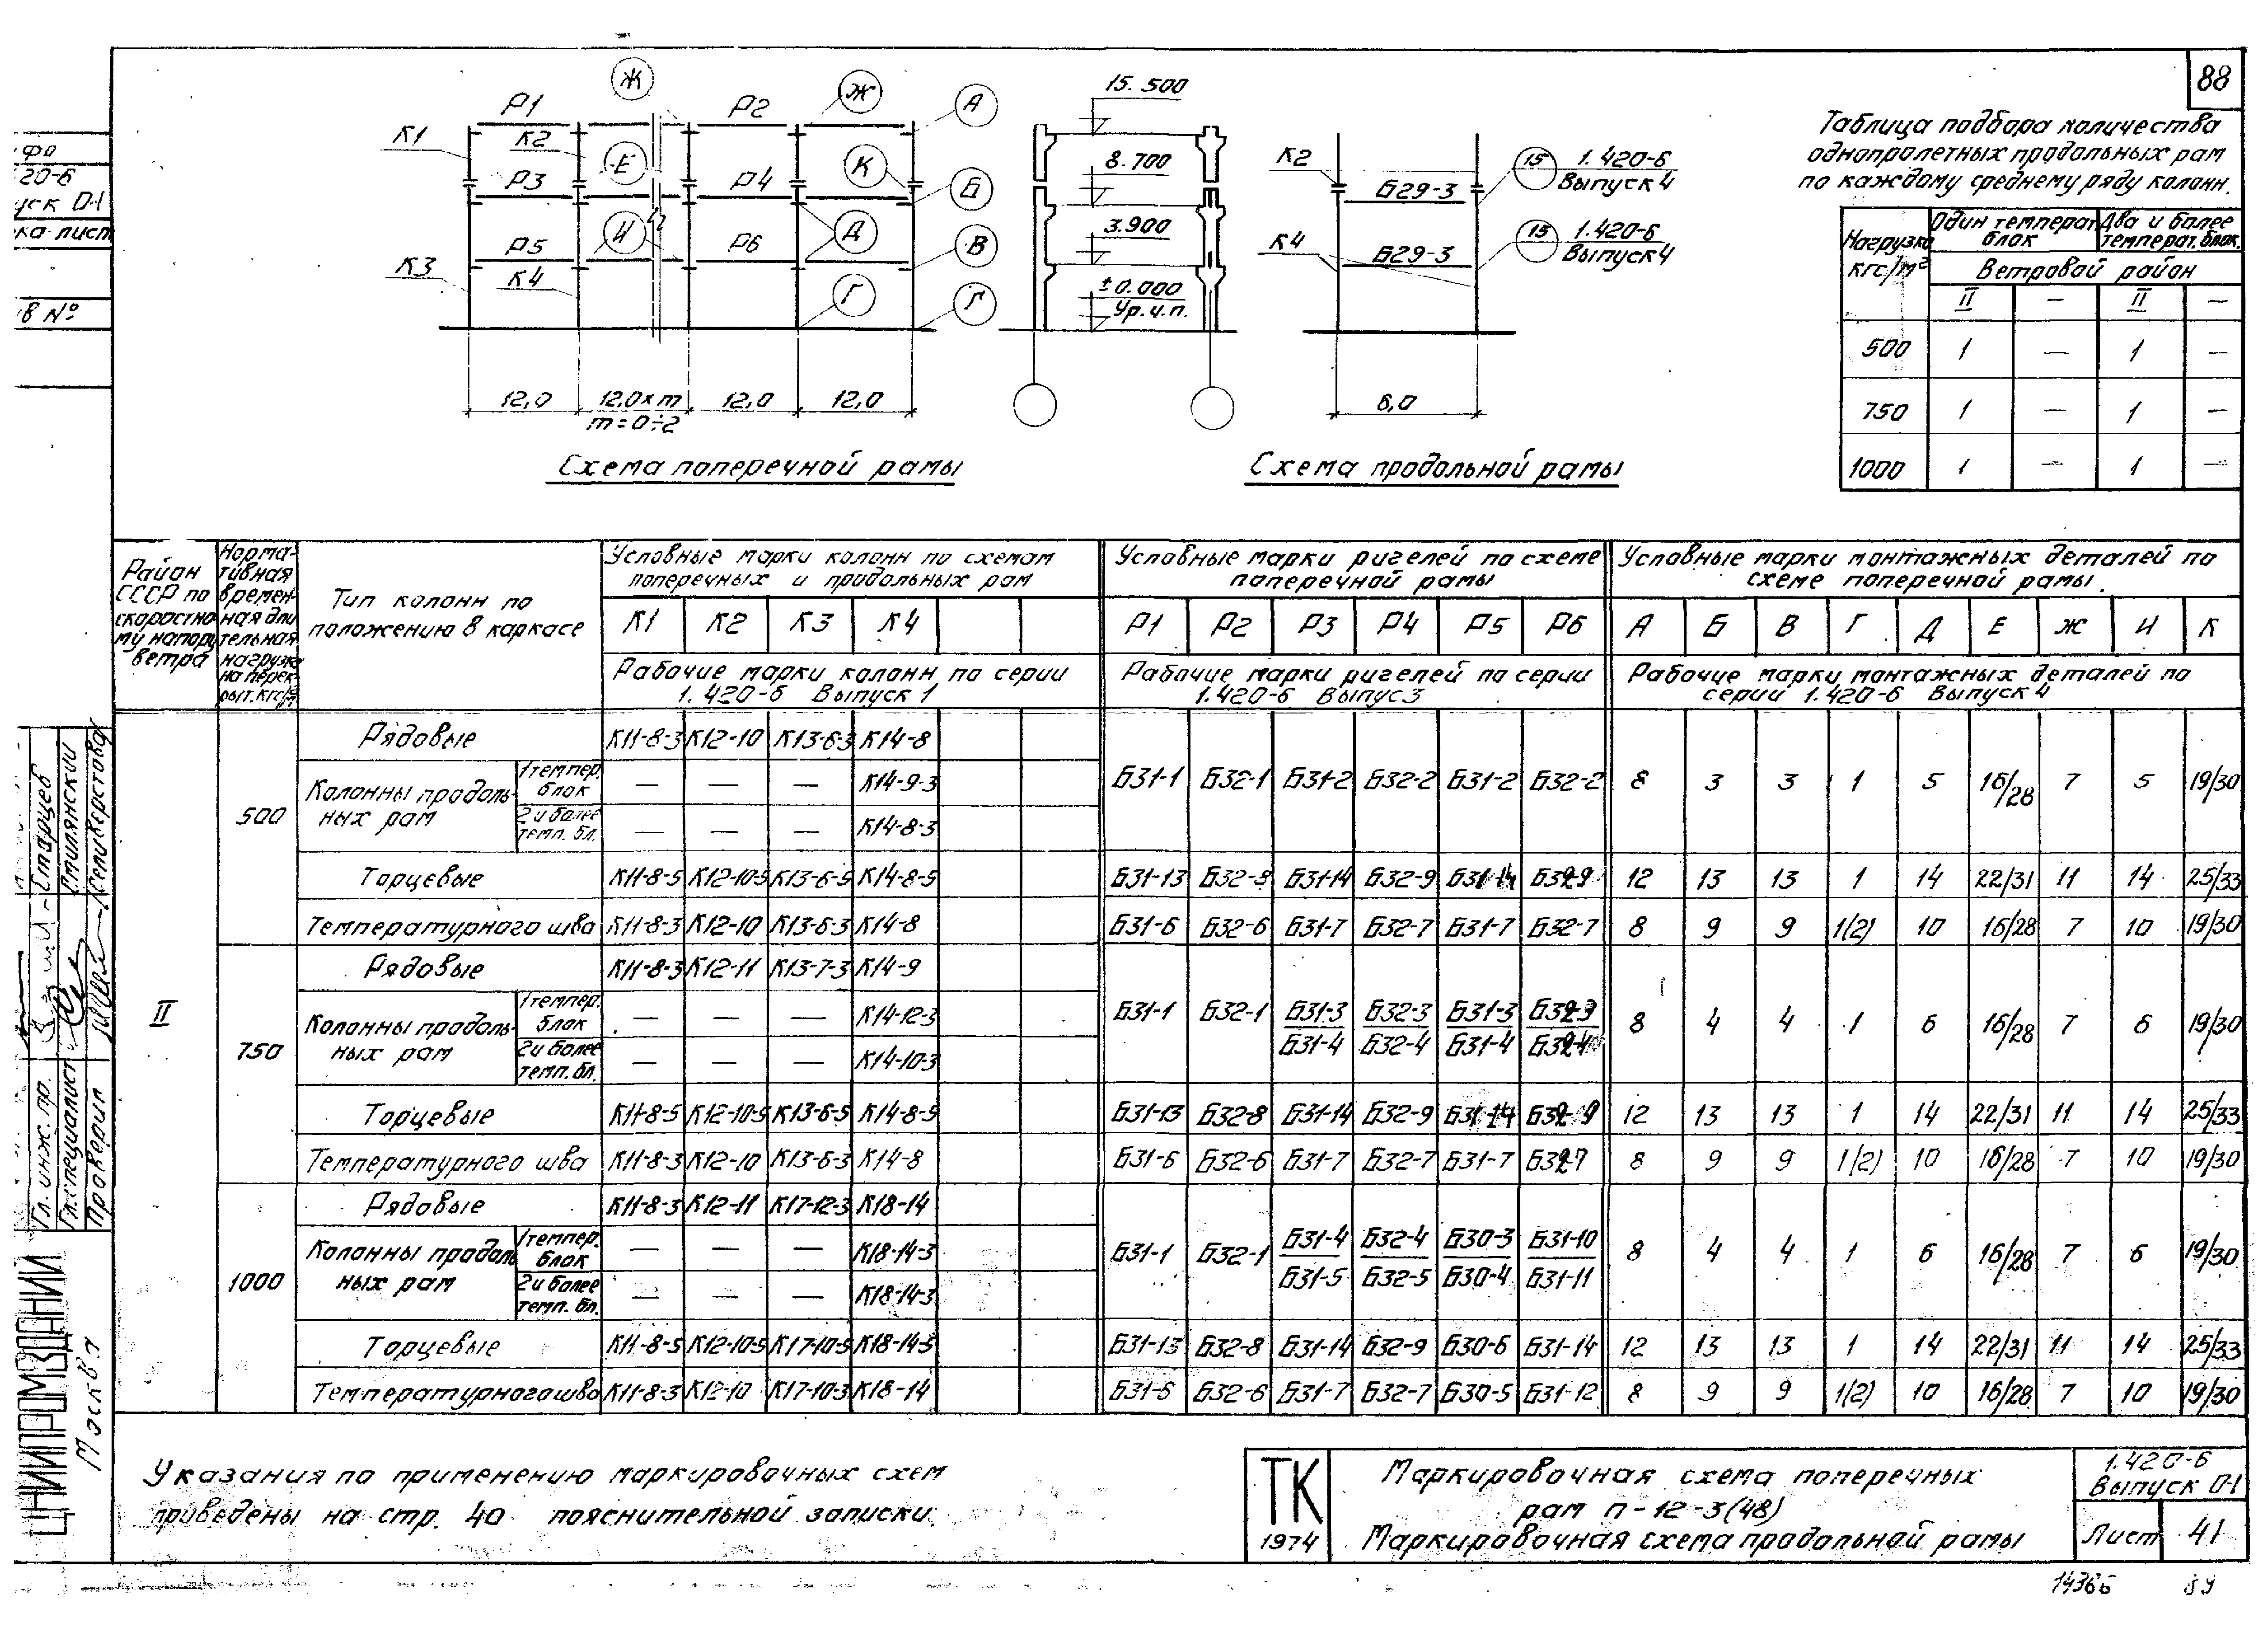 88
Р1
Ж
Р2
Ж
А
К1
К2
Е
К
Р3
Р4
Б
И
Д
Р5
Р6
В
К3
К4
Г
Г
12,0
12,0×m
12,0
12,0
m=0÷2
Схема поперечной рамы
15.500
8.700
3.900
±0.000
Ур.ч.п.
К2
Б29-3
15
1.420-6
Выпуск 4
К4
Б29-3
15
1.420-6
Выпуск 4
6,0
Схема продольной рамы
Таблица подбора количества
однопролетных продольных рам
по каждому среднему ряду колонн.
Нагрузка кгс/м²
Один температ. блок
Два и более температ. блок.
Ветровой район
II — II —
500 1 — 1 —
750 1 — 1 —
1000 1 — 1 —
Район СССР по скоростному напору ветра
Нормативная временная длительная нагрузка на перекрыт. кгс/м²
Тип колонн по положению в каркасе
Условные марки колонн по схемам поперечных и продольных рам
Условные марки ригелей по схеме поперечной рамы
Условные марки монтажных деталей по схеме поперечной рамы.
К1 К2 К3 К4
Р1 Р2 Р3 Р4 Р5 Р6
А Б В Г Д Е Ж И К
Рабочие марки колонн по серии 1.420-6 Выпуск 1
Рабочие марки ригелей по серии 1.420-6 Выпус 3
Рабочие марки монтажных деталей по серии 1.420-6 Выпуск 4
II
500
Рядовые К11-8-3 К12-10 К13-6-3 К14-8
Колонны продольных рам
1 темпер. блок — — — К14-9-3
2 и более темп. бл. — — — К14-8-3
Б31-1 Б32-1 Б31-2 Б32-2 Б31-2 Б32-2 8 3 3 1 5 16/28 7 5 19/30
Торцевые К11-8-5 К12-10-5 К13-6-5 К14-8-5 Б31-13 Б32-8 Б31-14 Б32-9 Б31-14 Б32-9 12 13 13 1 14 22/31 11 14 25/33
Температурного шва К11-8-3 К12-10 К13-6-3 К14-8 Б31-6 Б32-6 Б31-7 Б32-7 Б31-7 Б32-7 8 9 9 1(2) 10 16/28 7 10 19/30
750
Рядовые К11-8-3 К12-11 К13-7-3 К14-9
Колонны продольных рам
1 темпер. блок — — — К14-12-3
2 и более темп. бл. — — — К14-10-3
Б31-1 Б32-1 Б31-3/Б31-4 Б32-3/Б32-4 Б31-3/Б31-4 Б32-3/Б32-4 8 4 4 1 6 16/28 7 6 19/30
Торцевые К11-8-5 К12-10-5 К13-6-5 К14-8-5 Б31-13 Б32-8 Б31-14 Б32-9 Б31-14 Б32-9 12 13 13 1 14 22/31 11 14 25/33
Температурного шва К11-8-3 К12-10 К13-6-3 К14-8 Б31-6 Б32-6 Б31-7 Б32-7 Б31-7 Б32-7 8 9 9 1(2) 10 16/28 7 10 19/30
1000
Рядовые К11-8-3 К12-11 К17-12-3 К18-14
Колонны продольных рам
1 темпер. блок — — — К18-14-3
2 и более темп. бл. — — — К18-14-3
Б31-1 Б32-1 Б31-4/Б31-5 Б32-4/Б32-5 Б30-3/Б30-4 Б31-10/Б31-11 8 4 4 1 6 16/28 7 6 19/30
Торцевые К11-8-5 К12-10-5 К17-10-5 К18-14-5 Б31-13 Б32-8 Б31-14 Б32-9 Б30-6 Б31-14 12 13 13 1 14 22/31 11 14 25/33
Температурного шва К11-8-3 К12-10 К17-10-3 К18-14 Б31-6 Б32-6 Б31-7 Б32-7 Б30-5 Б31-12 8 9 9 1(2) 10 16/28 7 10 19/30
Указания по применению маркировочных схем
приведены на стр. 40 пояснительной записки.
ТК
1974
Маркировочная схема поперечных
рам п-12-3(48)
Маркировочная схема продольной рамы
1.420-6
Выпуск 0-1
Лист 41
14366 89
ЦНИИПРОМЗДАНИЙ
Москва
Гл. инж. пр. Старцев
Гл. специалист Смилянский
Проверил Селиверстова